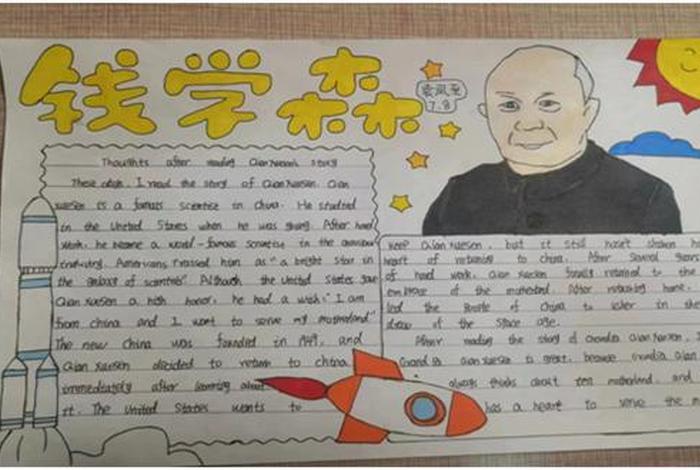 钱学森
7.8
Thoughts after reading Qian Xuesen's story
These days, I read the story of Qian Xuesen. Qian
Xuesen is a famous scientist in China. He studied
in the United States when he was young. After hard
work, he became a world-famous scientist in the
industry. Americans him as "a bright star in
the galaxy of scientists". Although the United States gave
Qian Xuesen a high honor, he had a wish: "I am
from china and I want to serve my motherland"
The new China was founded in 1949, and
Qian Xuesen decided to return to china
immediately after learning about
it. The United States wants to
keep Qian Xuesen, but it still
heart of returning to china. After several years
of hard work, Qian Xuesen finally returned to the
embrace of the motherland. After returning home,
led the People of China to usher in the
of the Space age.
After reading the story of Grandpa Qian Xuesen, I
Grandpa Qian Xuesen is great, because Grandpa Qian
always thinks about motherland, and
has a heart to serve the